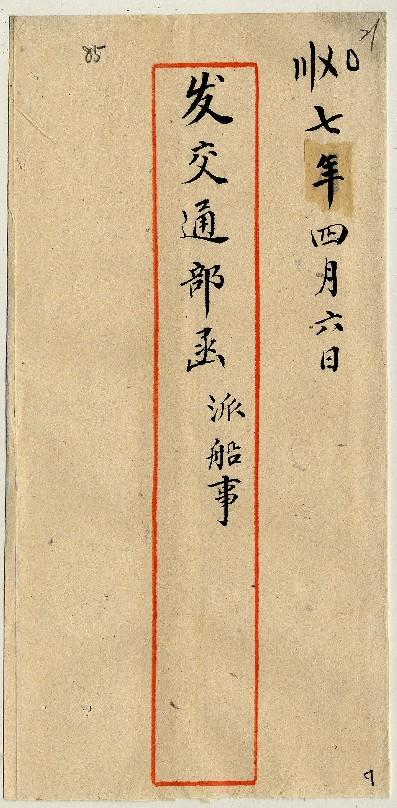 七年四月六日
发交通部函 派船事
85